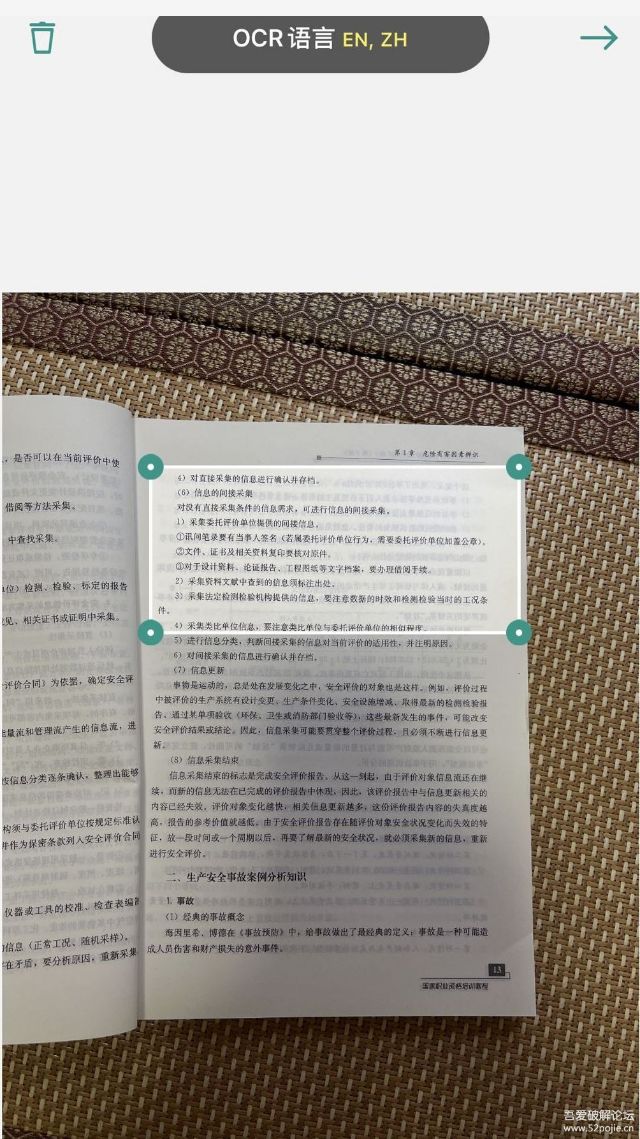 OCR 语言 EN, ZH
第1章 危险有害因素辨识
，是否可以在当前评价中使
借阅等方法采集。
中查找采集。
单位）检测、检验、标定的报告
意见、相关证书或证明中采集。
评价合同）为依据，确定安全评
能量流和管理流产生的信息流，进
按信息分类逐条确认，整理出能够
构须与委托评价单位按规定标准认
并作为保密条款列入安全评价合同
仪器或工具的校准、检查表编
信息（正常工况、随机采样），
存在矛盾，要分析原因，重新采集
4）对直接采集的信息进行确认并存档。
（6）信息的间接采集
对没有直接采集条件的信息需求，可进行信息的间接采集。
1）采集委托评价单位提供的间接信息。
①讯问笔录要有当事人签名（若属委托评价单位行为，需要委托评价单位加盖公章）。
②文件、证书及相关资料复印要核对原件。
③对于设计资料、论证报告、工程图纸等文字档案，要办理借阅手续。
2）采集资料文献中查到的信息须标注出处。
3）采集法定检测检验机构提供的信息，要注意数据的时效和检测检验当时的工况条
件。
4）采集类比单位信息，要注意类比单位与委托评价单位的相似程度。
5）进行信息分类，判断间接采集的信息对当前评价的适用性，并注明原因。
6）对间接采集的信息进行确认并存档。
（7）信息更新
事物是运动的，总是处在发展变化之中，安全评价的对象也是这样。例如，评价过程
中被评价的生产系统有设计变更、生产条件变化、安全设施增减、取得最新的检测检验报
告、通过某单项验收（环保、卫生或消防部门验收等），这些最新发生的事件，可能改变
安全评价结果或结论。因此，信息采集可能要贯穿整个评价过程，且必须不断进行信息更
新。
（8）信息采集结束
信息采集结束的标志是完成安全评价报告。从这一刻起，由于评价对象信息流还在继
续，而新的信息无法在已完成的评价报告中体现，因此，该评价报告中与信息更新相关的
内容已经失效。评价对象变化越快，相关信息更新越多，这份评价报告内容的失真度越
高，报告的参考价值就越低。由于安全评价报告存在随评价对象安全状况变化而失效的特
征，故一段时间或一个周期以后，再要了解最新的安全状况，就必须采集新的信息，重新
进行安全评价。
二、生产安全事故案例分析知识
1. 事故
（1）经典的事故概念
海因里希、博德在《事故预防》中，给事故做出了最经典的定义：事故是一种可能造
成人员伤害和财产损失的意外事件。
13
国家职业资格培训教程
吾爱破解论坛
www.52pojie.cn